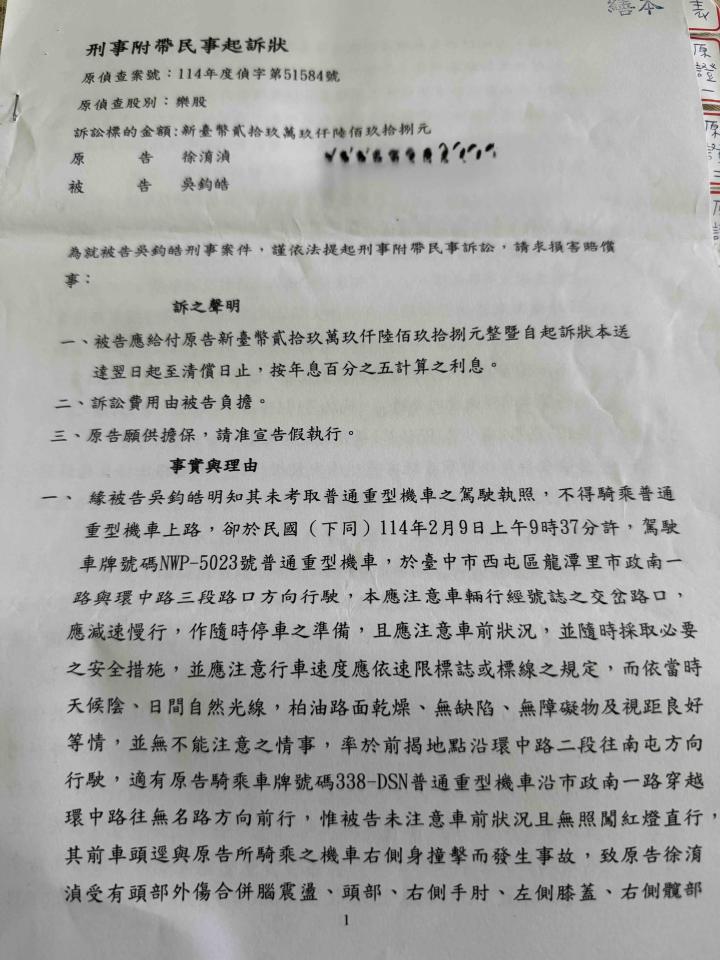 繕本
表
原證一
原證二
刑事附帶民事起訴狀
原偵查案號：114年度偵字第51584號
原偵查股別：樂股
訴訟標的金額：新臺幣貳拾玖萬玖仟陸佰玖拾捌元
原　　告　徐淯湞
被　　告　吳鈞皓
為就被告吳鈞皓刑事案件，謹依法提起刑事附帶民事訴訟，請求損害賠償
事：
訴之聲明
一、被告應給付原告新臺幣貳拾玖萬玖仟陸佰玖拾捌元整暨自起訴狀本送
達翌日起至清償日止，按年息百分之五計算之利息。
二、訴訟費用由被告負擔。
三、原告願供擔保，請准宣告假執行。
事實與理由
一、 緣被告吳鈞皓明知其未考取普通重型機車之駕駛執照，不得騎乘普通
重型機車上路，卻於民國（下同）114年2月9日上午9時37分許，駕駛
車牌號碼NWP-5023號普通重型機車，於臺中市西屯區龍潭里市政南一
路與環中路三段路口方向行駛，本應注意車輛行經號誌之交岔路口，
應減速慢行，作隨時停車之準備，且應注意車前狀況，並隨時採取必要
之安全措施，並應注意行車速度應依速限標誌或標線之規定，而依當時
天候陰、日間自然光線，柏油路面乾燥、無缺陷、無障礙物及視距良好
等情，並無不能注意之情事，率於前揭地點沿環中路二段往南屯方向
行駛，適有原告騎乘車牌號碼338-DSN普通重型機車沿市政南一路穿越
環中路往無名路方向前行，惟被告未注意車前狀況且無照闖紅燈直行，
其前車頭逕與原告所騎乘之機車右側身撞擊而發生事故，致原告徐淯
湞受有頭部外傷合併腦震盪、頭部、右側手肘、左側膝蓋、右側髖部
1